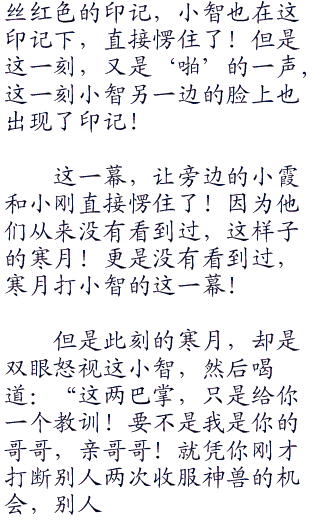 丝红色的印记，小智也在这
印记下，直接愣住了！但是
这一刻，又是‘啪’的一声，
这一刻小智另一边的脸上也
出现了印记！
这一幕，让旁边的小霞
和小刚直接愣住了！因为他
们从来没有看到过，这样子
的寒月！更是没有看到过，
寒月打小智的这一幕！
但是此刻的寒月，却是
双眼怒视这小智，然后喝
道：“这两巴掌，只是给你
一个教训！要不是我是你的
哥哥，亲哥哥！就凭你刚才
打断别人两次收服神兽的机
会，别人